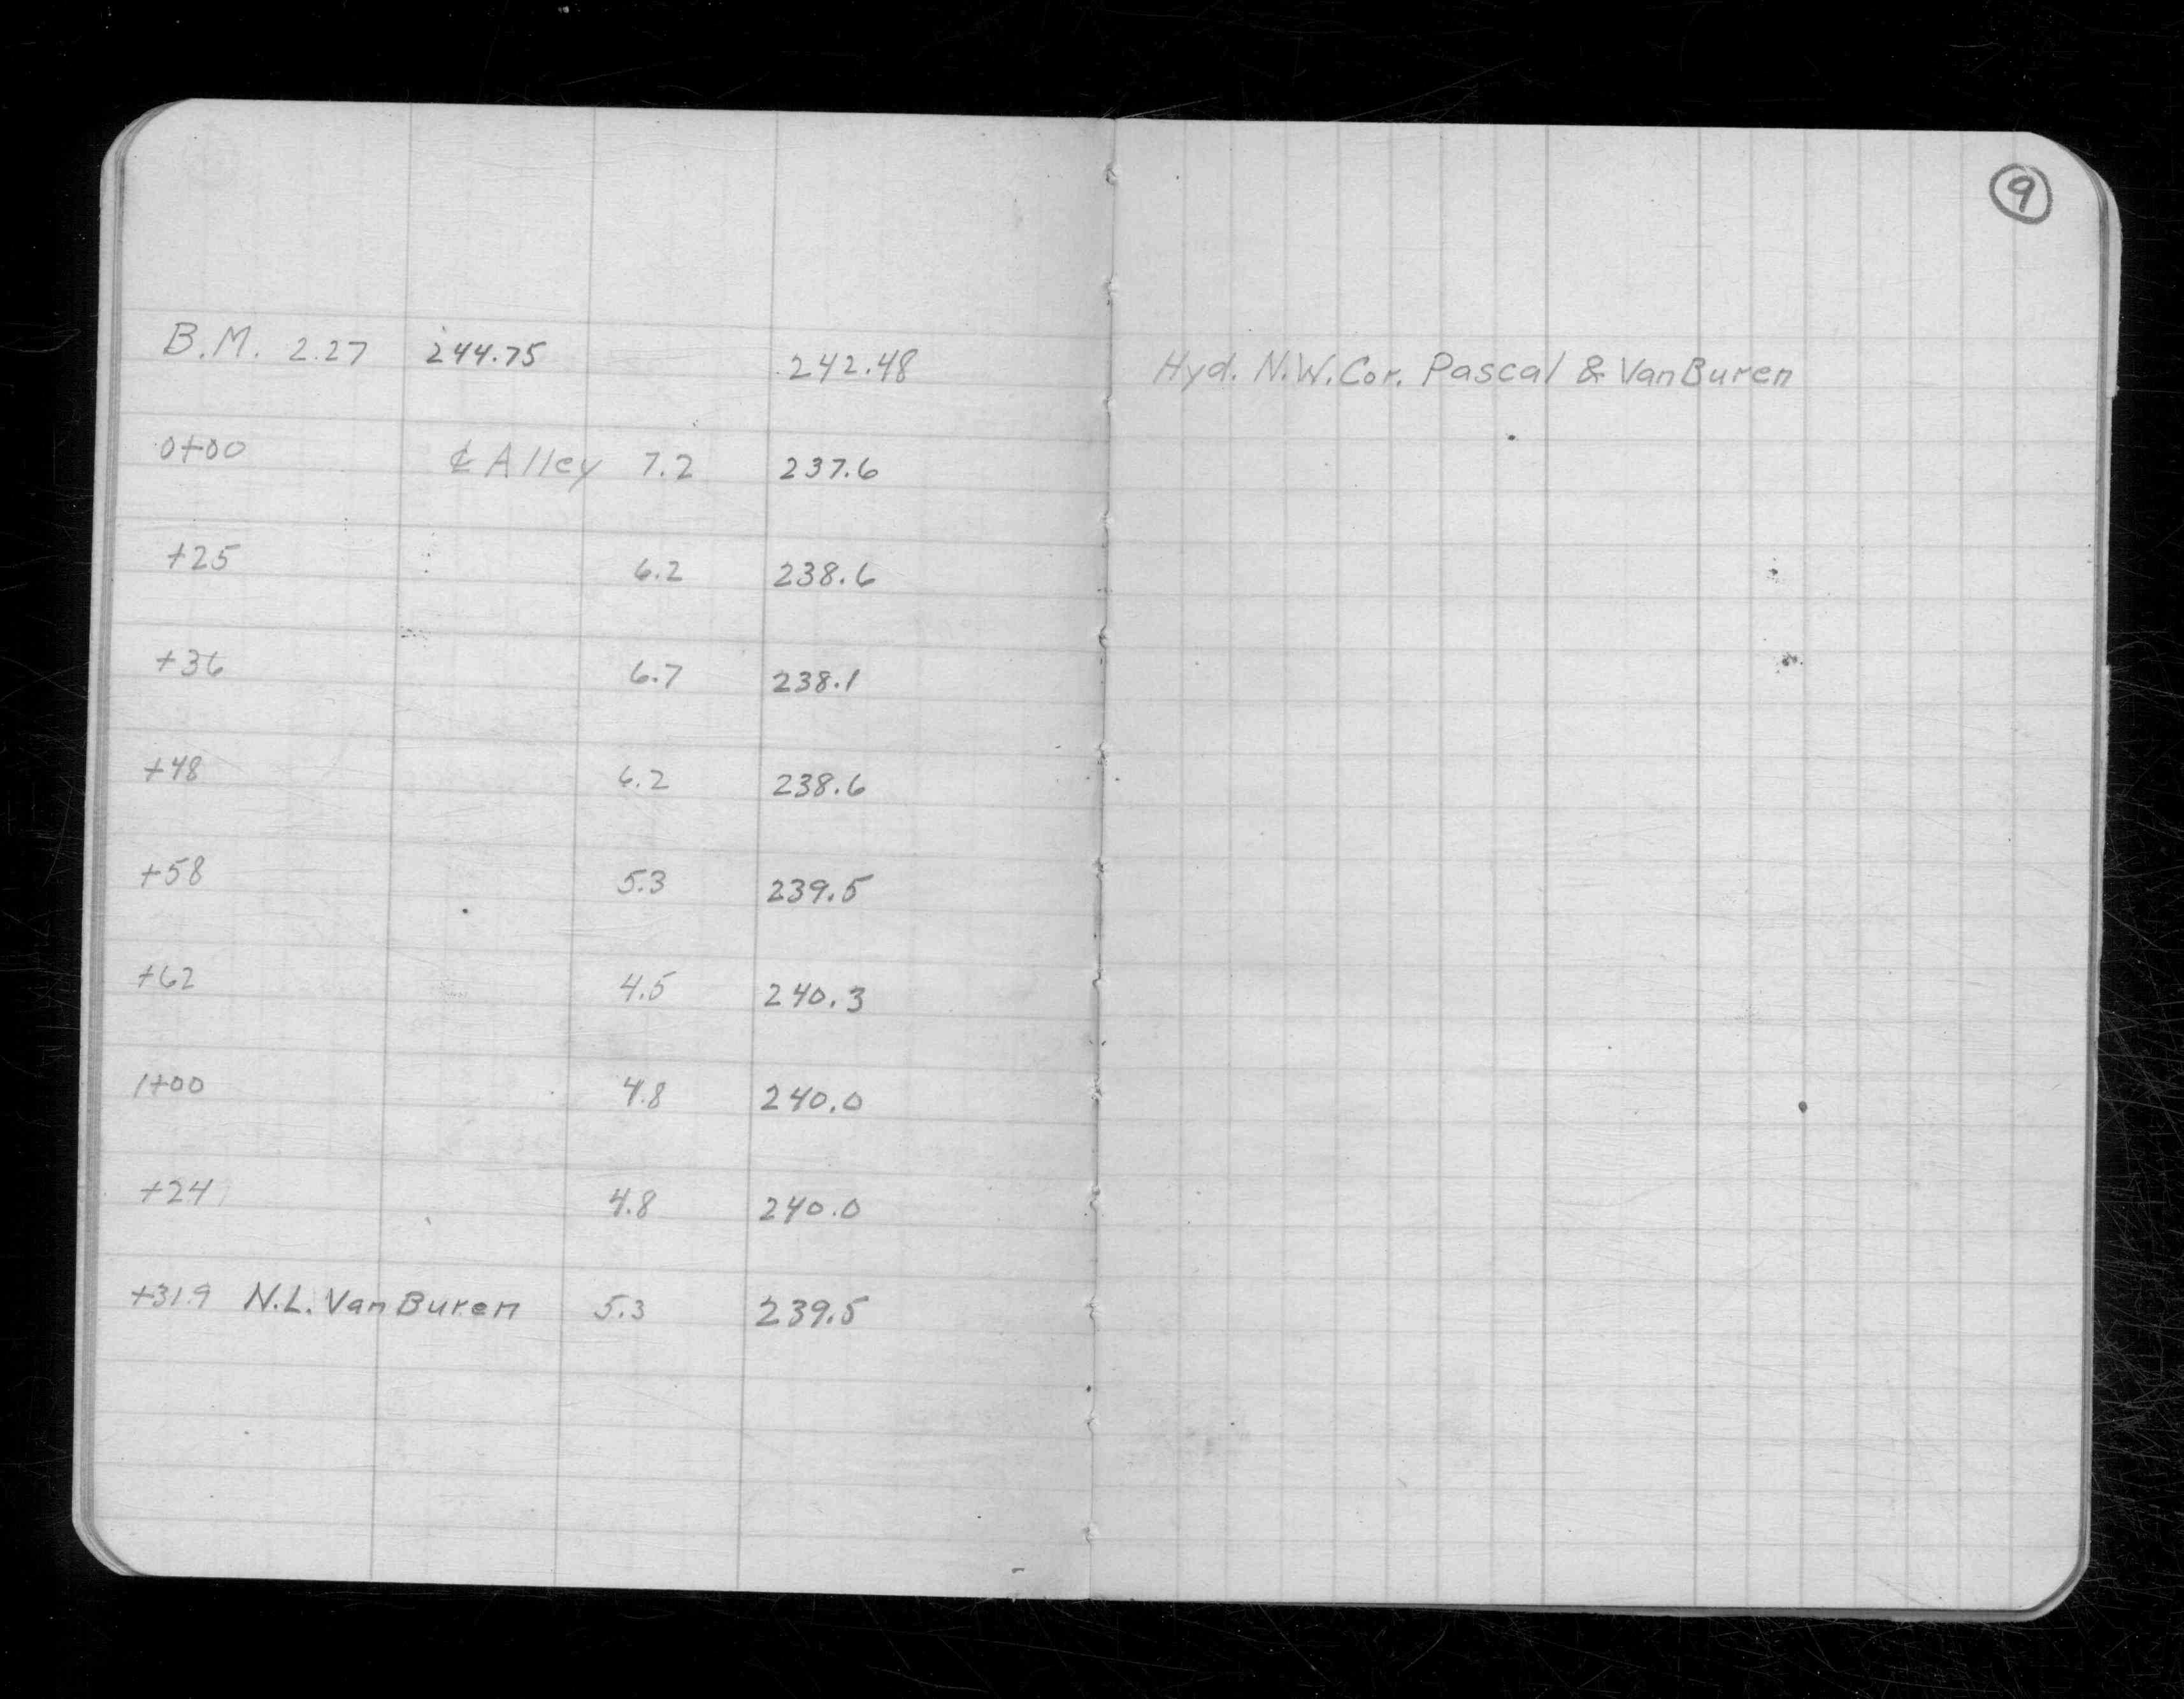 9
B.M. 2.27 244.75 242.48 Hyd. N.W. Cor. Pascal & VanBuren
0+00 ℄ Alley 7.2 237.6
+25 6.2 238.6
+36 6.7 238.1
+48 6.2 238.6
+58 5.3 239.5
+62 4.5 240.3
1+00 4.8 240.0
+24 4.8 240.0
+31.9 N.L. Van Buren 5.3 239.5